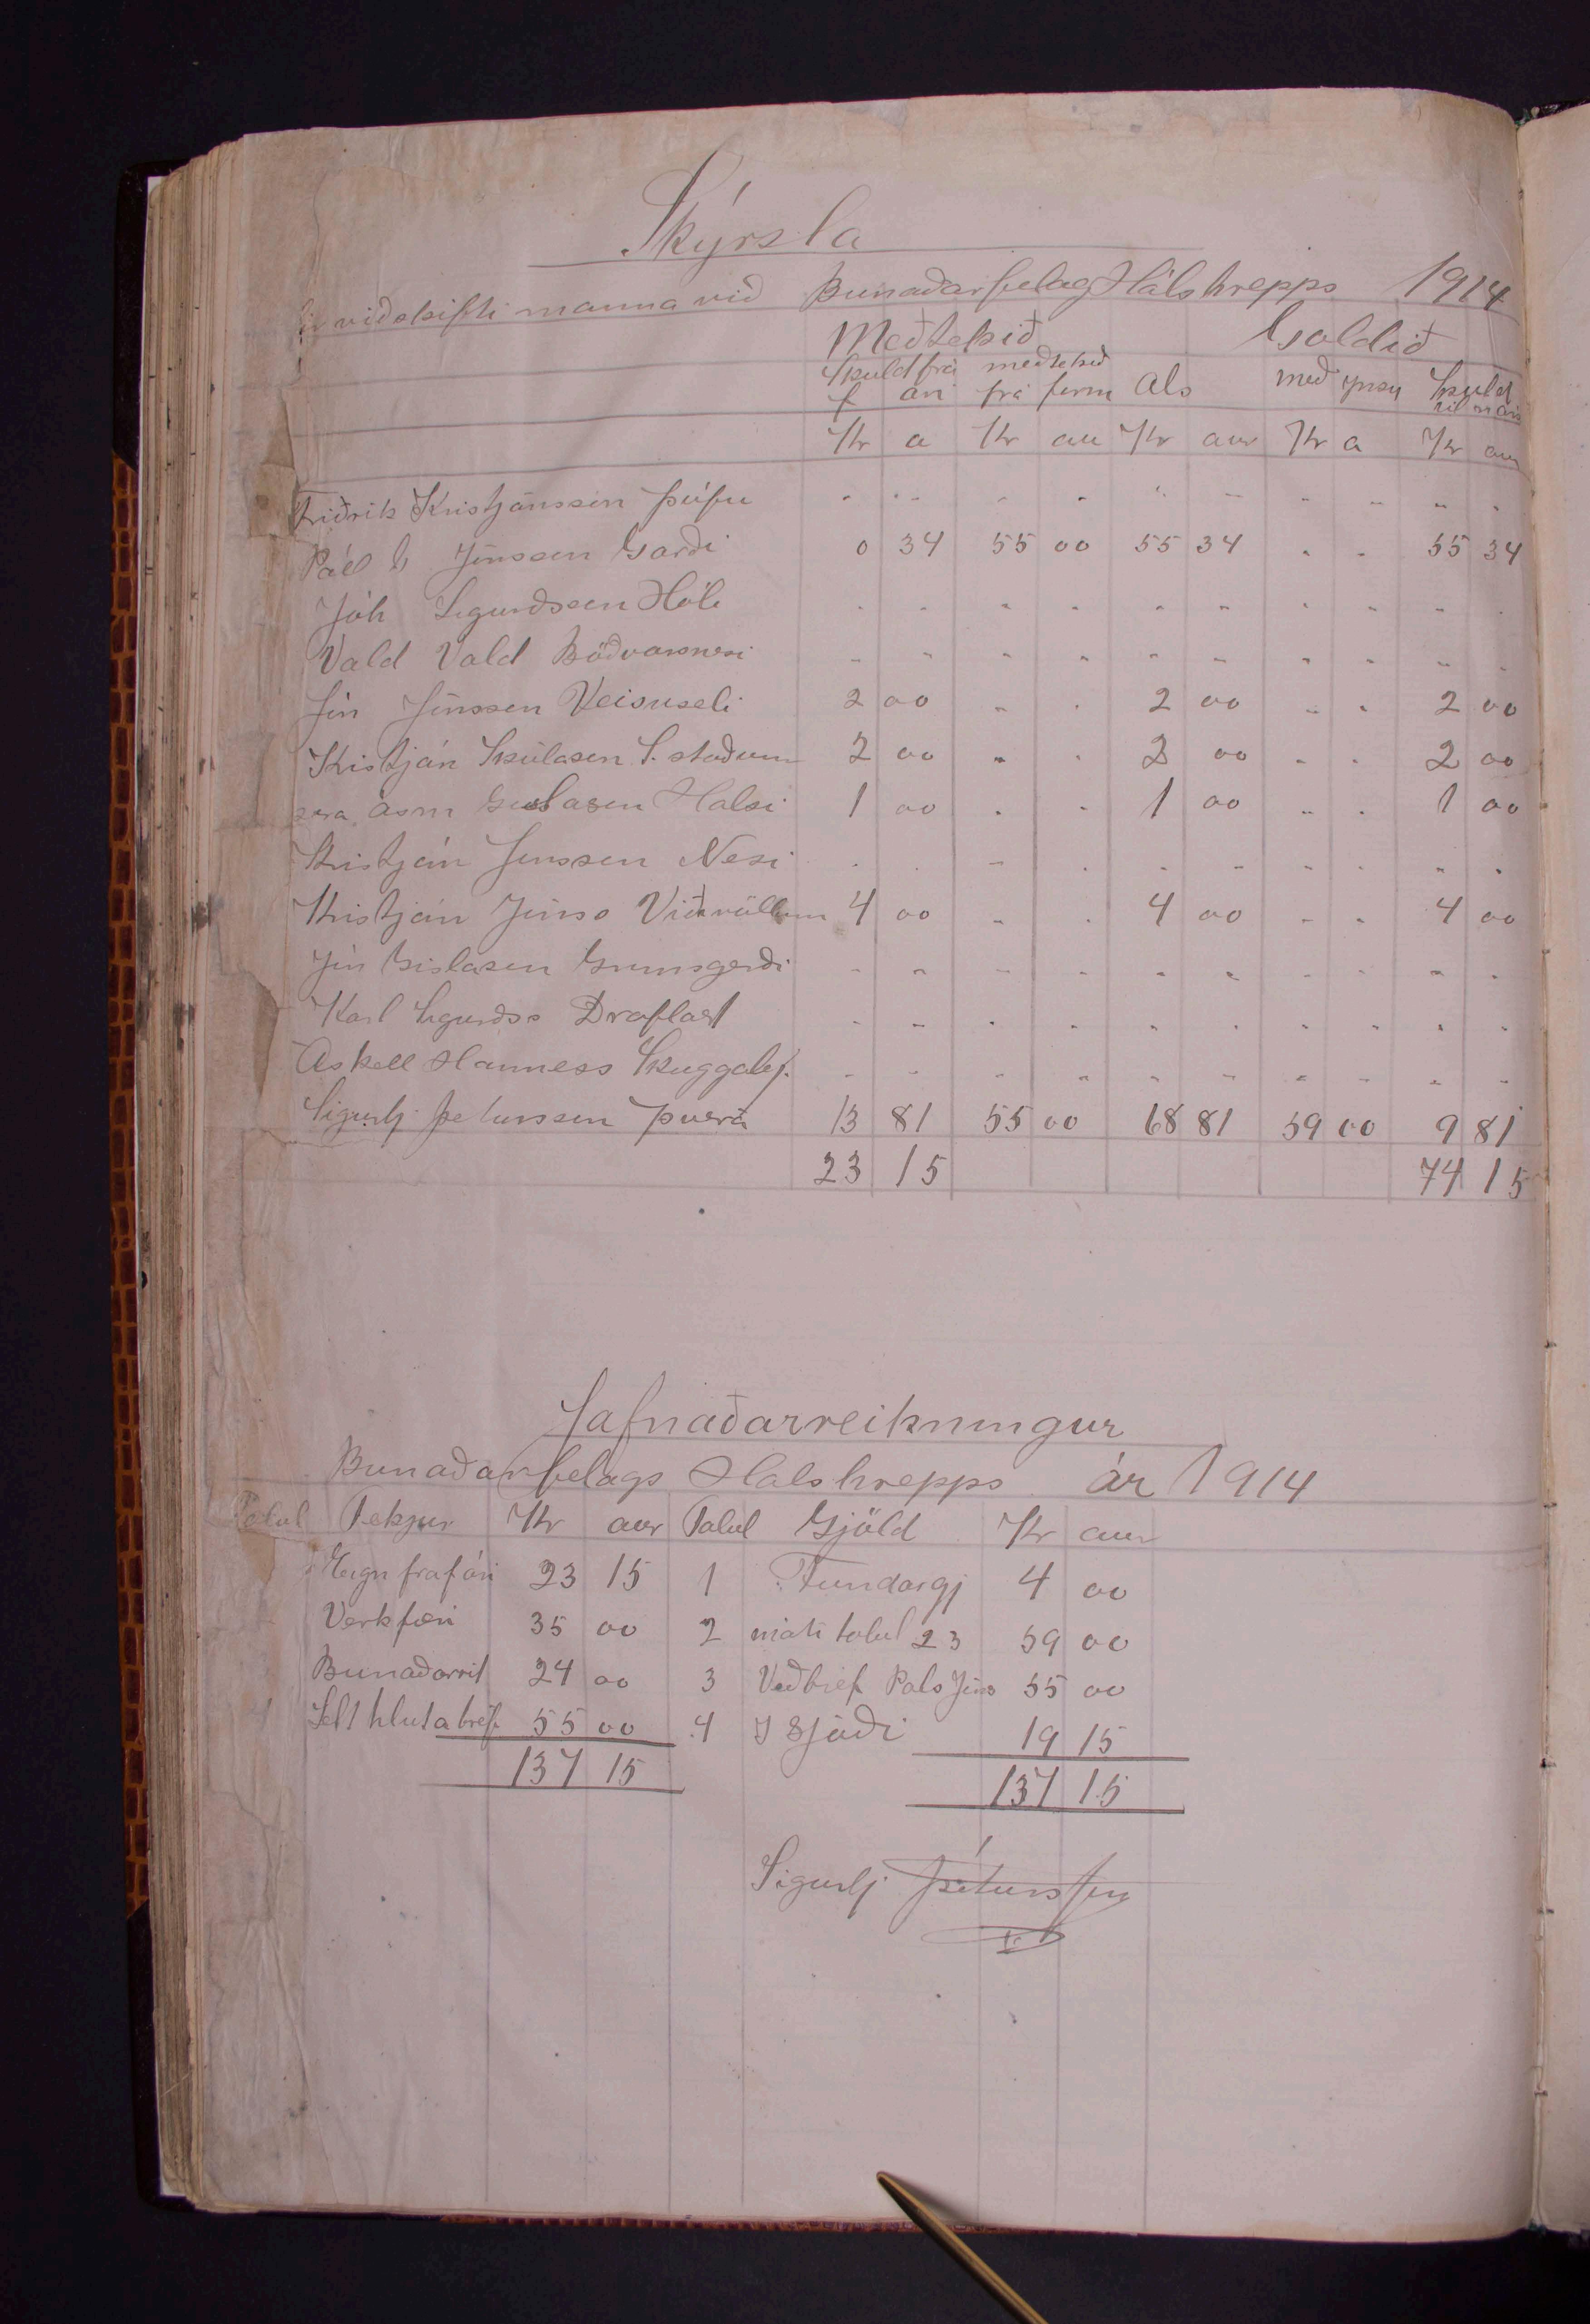 Skýrsla
viðskifti manna við Bunaðarfelag Hálshrepps 1914
Meðtekið Goldið
Skuld frá meðtekið Als með ymsu Skuld
f ári frá ferm til n árs
Kr a Kr au Kr aur Kr a Kr aur
Friðrik Kristjánsson Þúfu - - - - - - - - - -
Páll G Jónsson Garði 0 34 55 00 55 34 - - 55 34
Jóh Sigurðsson Hóli - - - - - - - - - -
Vald Vald Böðvarsnesi - - - - - - - - - -
Jón Jónsson Veisuseli 2 00 - - 2 00 - - 2 00
Kristján Skúlason S. stoðum 2 00 - - 2 00 - - 2 00
sera Ásm Gislason Halsi 1 00 - - 1 00 - - 1 00
Kristján Jónsson Nesi - - - - - - - - - -
Kristján Jónss Viðivöllum 4 00 - - 4 00 - - 4 00
Jón Gislason Grimsgerði - - - - - - - - - -
Karl Sigurðss Draflast - - - - - - - - - -
Askell Hanness Skuggabj. - - - - - - - - - -
Sigurbj Peturssen Þverá 13 81 55 00 68 81 59 00 9 81
23 15 74 15
Jafnaðarreikningur
Bunaðarfelags Halshrepps ár 1914
Tolul Tekjur Kr aur Tolul Gjöld Kr aur
Eign fra f ári 23 15 1 Fundargj 4 00
Verkfæri 35 00 2 móti tolul 23 59 00
Bunaðarrit 24 00 3 Veðbref Pals Jóns 55 00
Selt hlutabréf 55 00 4 I Sjóði 19 15
137 15 137 15
Sigurbj Péturssen